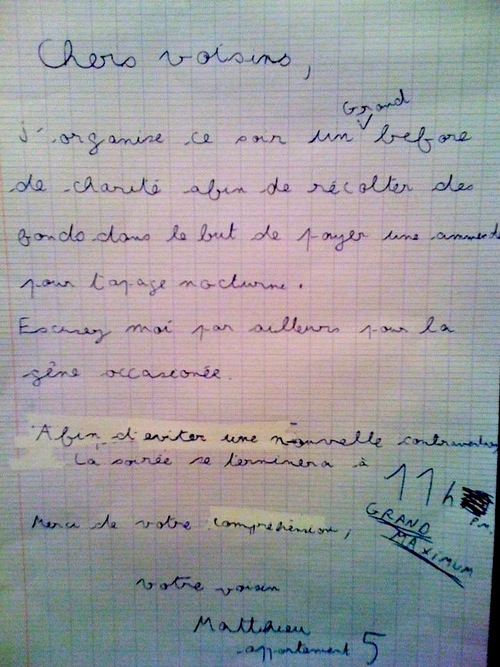 Chers voisins,
Grand
J'organise ce soir un before
de charité afin de récolter des
fonds dans le but de payer une ammende
pour tapage nocturne.
Escusez moi par ailleurs pour la
gêne occasionée.
Afin d'eviter une nouvelle contravention
la soirée se terminera à 11h
P.M.
GRAND
MAXIMUM
Merci de votre compréhension,
votre voisin
Matthieu
appartement 5